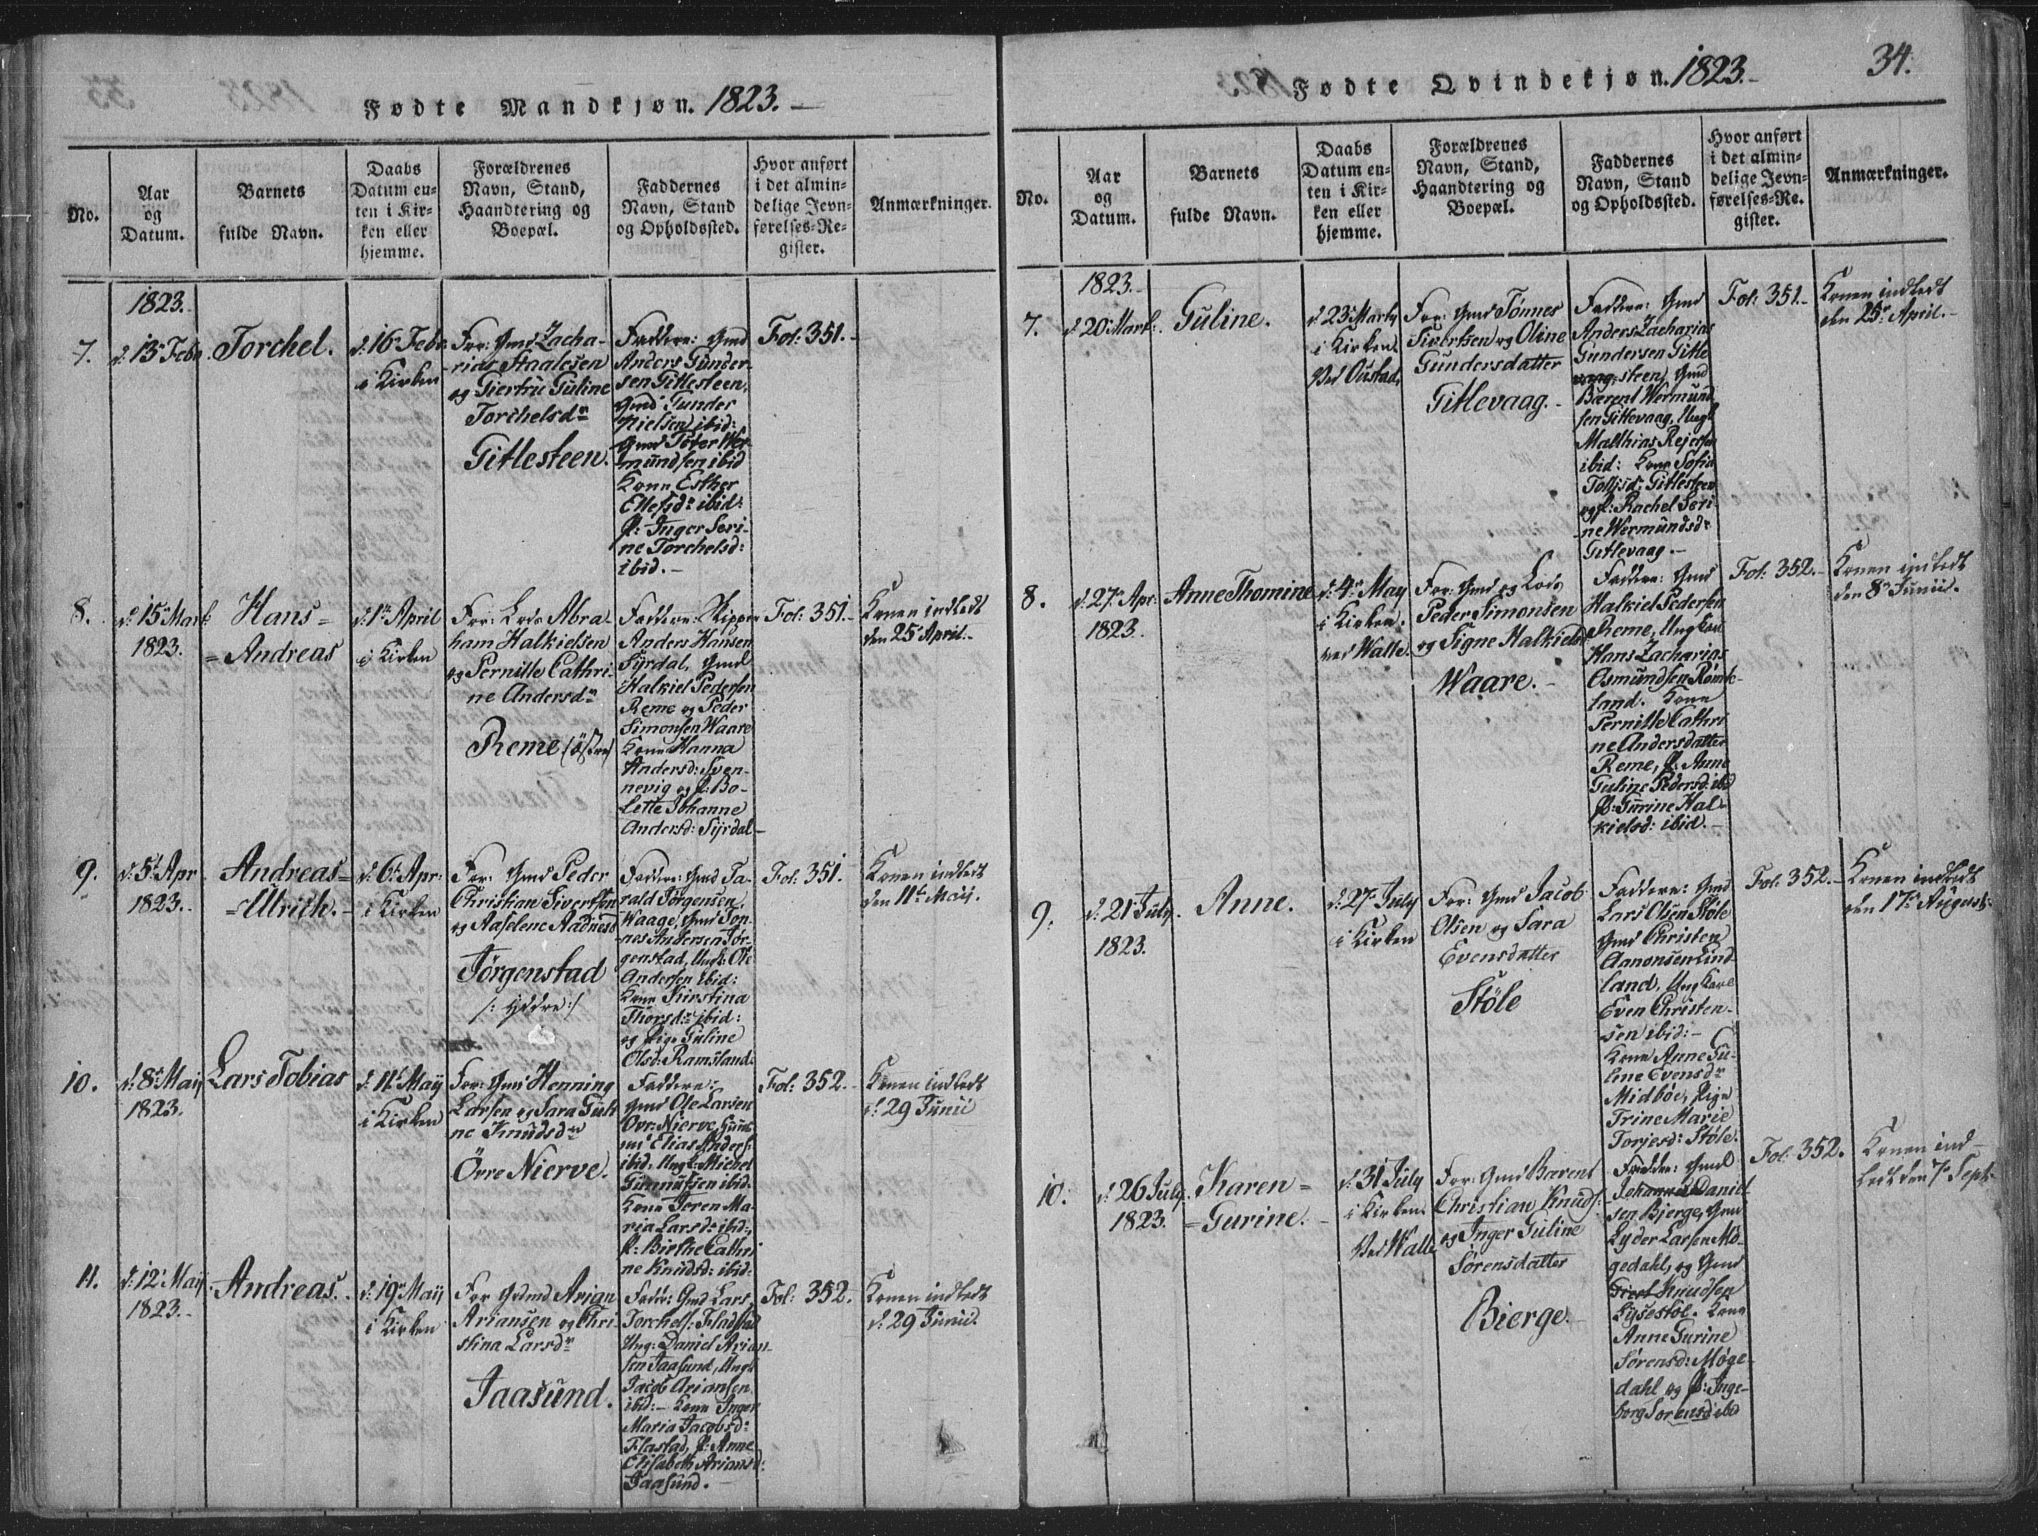 Fødte Mandkjøn. 1823.
No.
Aar
og
Datum.
Barnets
fulde Navn.
Daabs
Datum en-
ten i Kir-
ken eller
hjemme.
Forældrenes
Navn, Stand,
Haandtering og
Boepæl.
Faddernes
Navn, Stand
og Opholdssted.
Hvor anført
i det almin-
delige Jevn-
førelses-Re-
gister.
Anmærkninger.
7.
1823.
d: 13 Febr
Torchel.
d: 16 Febr
i Kirken
For: Gmd Zacha-
rias Staalesen
og Giertru Guline
Torchelsdr
Gitlesteen.
Faddere: Gmd
Anders Gunder-
sen Gitlesteen,
Gmd Gunder
Nielsen ibid:
Gmd Tører Wer-
mundsen ibid
Kone Esther
Ellefsdr ibid:
P: Inger Seri-
ne Torchelsd:
ibid.
Fol: 351.
8.
d: 15 Mart
1823.
Hans =
= Andreas
d: 1 April
i Kirken
For: Lods Abra-
ham Halkielsen
og Pernille Cathri-
ne Andersdr
Reme (Østre)
Faddere: Skipper
Anders Hansen
Syrdal, Gmd
Halkiel Pedersen
Reme og Peder
Simonsen Waare
Kone Hanna
Andersd: Sven-
nevig og P: Bo-
lette Johanne
Andersd: Syrdal
Fol: 351.
Konen indledt
den 25 April.
9.
d: 5t Apr
1823.
Andreas =
= Ulrich.
d: 6t Apr:
i Kirken
For: Gmd Peder
Christian Sivertsen
og Aaselene Aadnesd
Jørgenstad
/: Yddre :/
Faddere: Gmd Ta-
rald Jørgensen,
Waage, Gmd Ton-
nes Andersen Jør-
genstad, Ungk: Ole
Andersen ibid:
Kone Kirstina
Thorsdr ibid:
og Pige Guline
Olsd: Ramsland.
Fol: 351.
Konen indledt
den 11te Maij.
10.
d: 8 Maij
1823.
Lars Tobias
d: 11 Maij
i Kirken
For: Gmd Henning
Larsen og Sara Guli-
ne Knudsdr
Övre Nierve.
Faddere:
Gmd Ole Larsen
Ovr: Nierve,
Elias Anders:
ibid, Ungk: Michel
Gunnufsen ibid.
Kone Teren Ma-
ria Larsd: ibid:
P: Birthe Cathri
ne Knudsd: ibid.
Fol: 352.
Konen indledt
d: 29 Junii
11.
d: 12 Maij
1823.
Andreas.
d: 19 Maij
i Kirken
For Gmd Arian
Ariansen og Chri-
stina Larsdr
Jaasund.
Fadd: Gmd Lars
Torchels: Flastad
Ung: Daniel Arian-
sen Jaasund, Ungk
Jacob Ariansen
ibid: Kone Inger
Maria Jacobsd:
Flastad, P: Anne
Elisabeth Ariansd:
Jaasund.
Fol: 352.
Konen indledt
d: 29 Junii.
Fødte Qvindekjøn. 1823.
34.
No.
Aar
og
Datum.
Barnets
fulde Navn.
Daabs
Datum en-
ten i Kir-
ken eller
hjemme.
Forældrenes
Navn, Stand,
Haandtering og
Boepæl.
Faddernes
Navn, Stand
og Opholdssted.
Hvor anført
i det almin-
delige Jevn-
førelses-Re-
gister.
Anmærkninger.
7.
1823.
d: 20 Mart:
Guline.
d: 23 Marts
i Kirken
Ved Oustad,
For: Gmd Tønnes
Sivertsen og Oline
Gundersdatter
Gitlevaag.
Faddere: Gmd
Anders Zacharias
Gundersen Gitle
steen, Gmd
Bærent Wermund
sen Gitlevaag, Ungk
Mathias Rejersen
ibid: Kone Sofia
Tollifsd: Gitlesteen
og P: Rachel Seri-
ne Wermundsdr
Gitlevaag.
Fol: 351.
Konen indledt
den 25 April.
8.
d: 27 Apr:
1823.
Anne Thomine
d: 4 May
i Kirken
ved Walle.
For: Gmd og Lods
Peder Simonsen
og Signe Halkielsd
Waare.
Faddere: Gmd
Halkiel Pedersen
Reme, Ungkarl
Hans Zacharias
Osmundsen Rönne-
land. Kone
Pernille Cathri
ne Andersdatter
Reme, P: Anne
Guline Pedersd: ibd
P: Gurine Hal-
kielsd: ibid.
Fol: 352.
Konen indledt
den 8 Junii.
9.
d: 21 July.
1823.
Anne.
d: 27 July
i Kirken
For: Gmd Jacob
Olsen og Sara
Evensdatter
Stöle
Faddere: Gmd
Lars Olsen Støle
Gmd Christen
Aanonsen Lind-
land, Ungkarl
Even Christen-
sen ibid:
Kone Anne Gu-
line Evensdr
Midbøe, Pige
Trine Marie
Torjesd: Støle.
Fol: 352.
Konen indledt
den 17 August.
10.
d: 26 July.
1823.
Karen =
= Gurine.
d: 31 July
i Kirken
Ved Walle
For: Gmd Barent
Christian Knuds:
og Inger Guline
Sørensdatter
Bierge.
Faddere: Gmd
Johannes Daniel-
sen Bjerge, Gmd
Lyder Larsen Mö-
gedahl, og Gmd
Giert Knudsen
Lysestøl. Kone
Anne Gurine
Sørensd: Møge-
dahl og P: Inge-
borg Sorensd ibid
Fol: 352.
Konen ind-
ledt den 7 Sept: